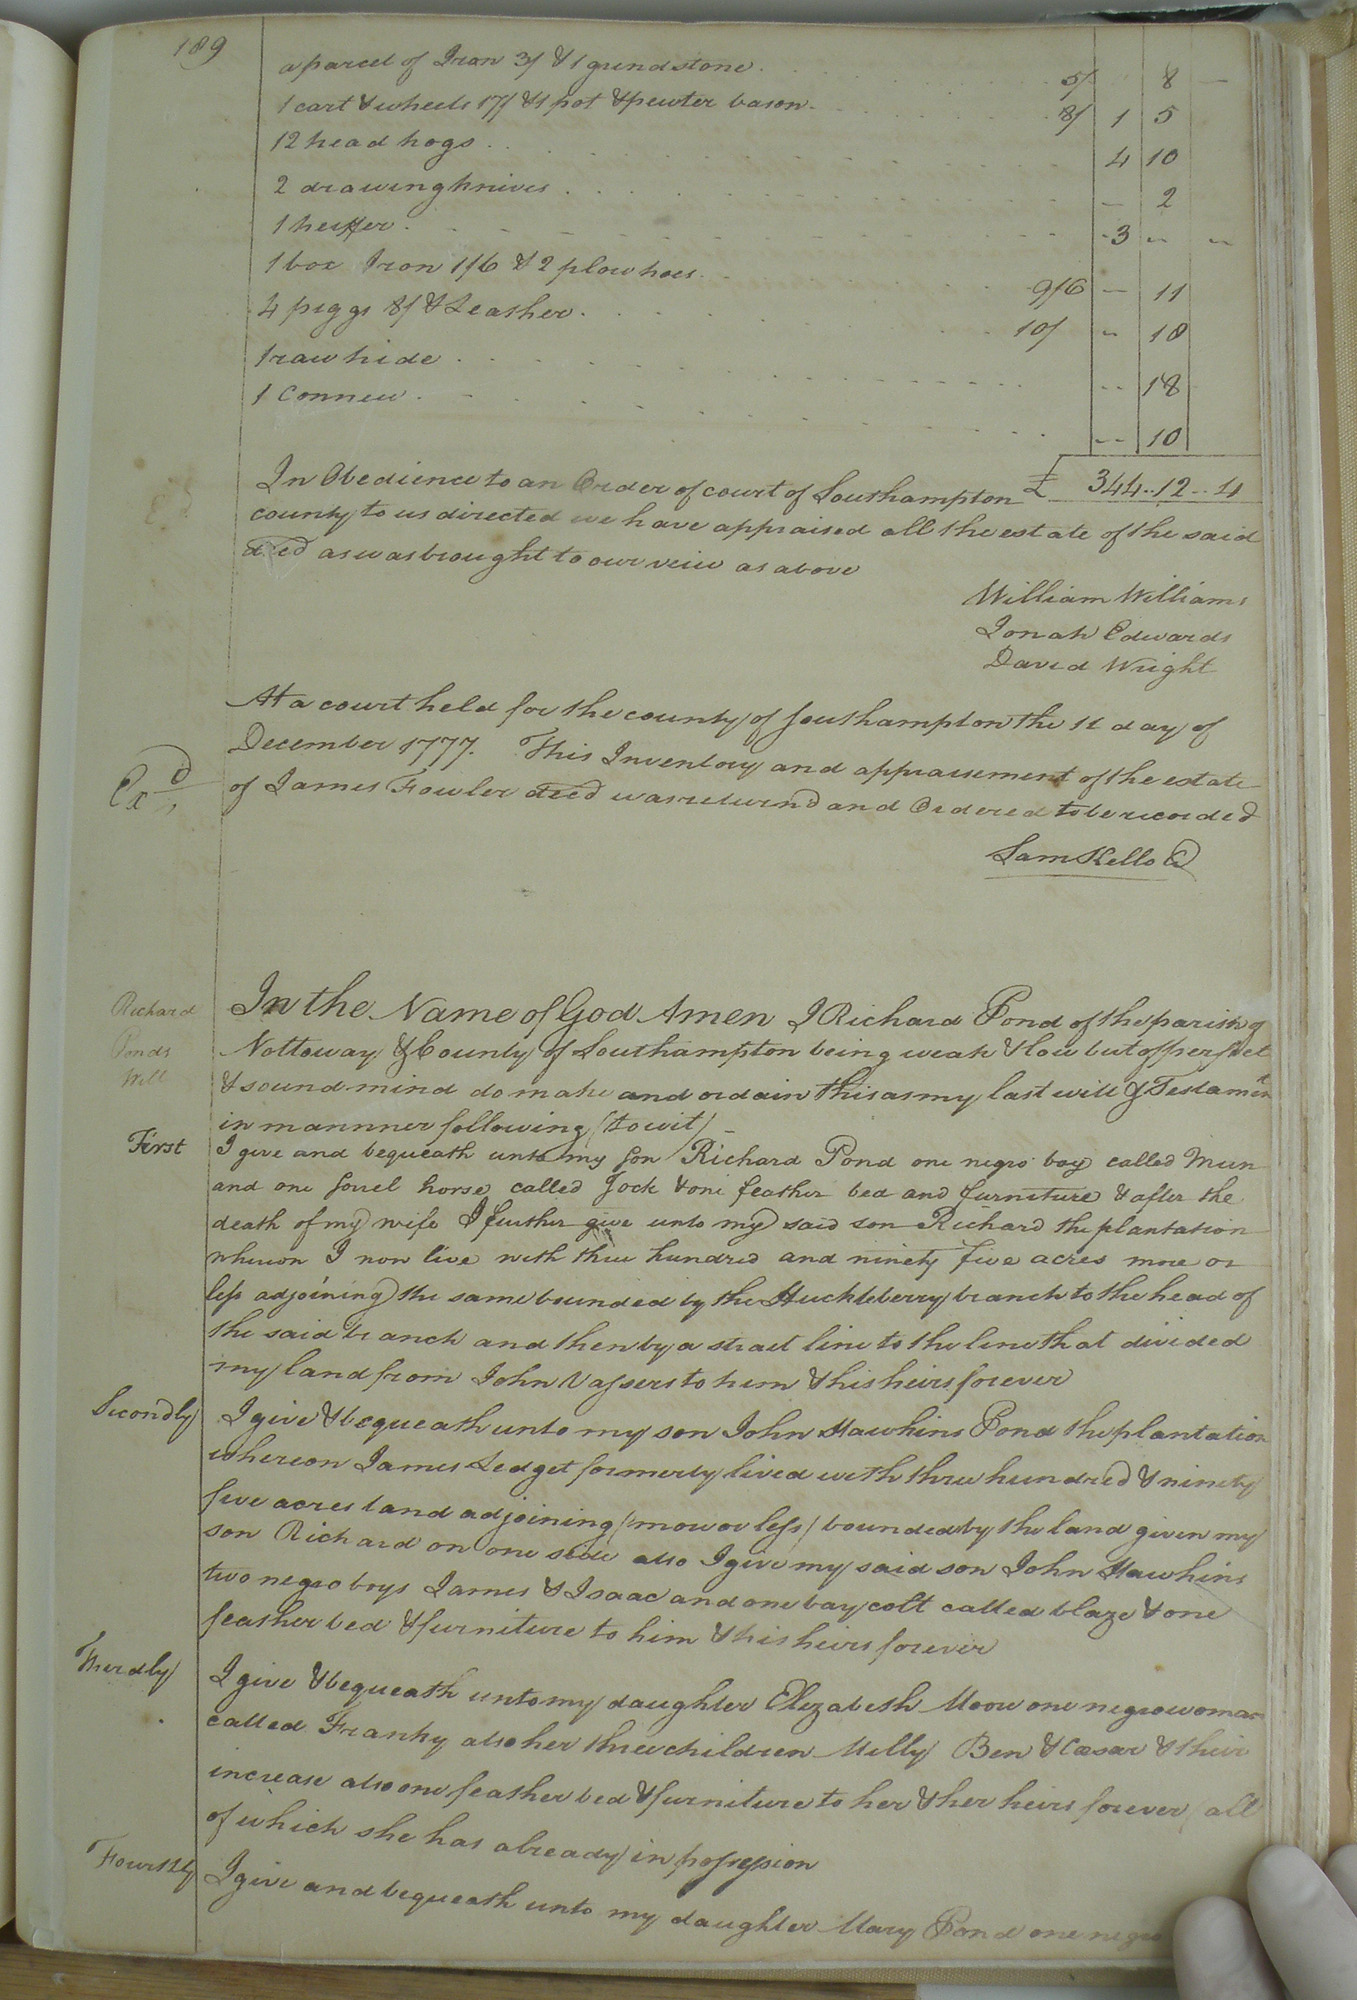 189
a parcel of Iron 3/ & 1 grindstone . 5/ 8 —
1 cart & wheels 17/ & 1 pot & pewter bason 8/ 1 5
12 head hogs . 4 10
2 drawing knives . — 2
1 heiffer . 3 " "
1 box Iron 1/6 & 2 plow hoes 9/6 — 11
4 piggs 8/ & Leather . 10/ " 18
1 raw hide . " 18
1 Connew . -- 10
In Obedience to an Order of court of Southampton £ 344..12..4
county to us directed we have appraised all the estate of the said
deced as was brought to our veiw as above
William Williams
Jonah Edwards
David Wright
At a court held for the county of Southampton the 11 day of
December 1777. This Inventory and appraisement of the estate
Exd of James Fowler deced was returnd and Ordered to be recorded
Sam Kello C
Richard Ponds Will
In the Name of God Amen I Richard Pond of the parish of
Nottoway & County of Southampton being weak & low but of perfect
& sound mind do make and ordain this as my last will & Testament
in mannner following (to wit) —
First I give and bequeath unto my son Richard Pond one negro boy called Mun
and one sorrel horse called Jock & one feather bed and furniture & after the
death of my wife I further give unto my said son Richard the plantation
whereon I now live with three hundred and ninety five acres more or
less adjoining the same bounded by the Huckleberry branch to the head of
the said branch and then by a strait line to the line that divided
my land from John Vassers to him & his heirs forever
Secondly I give & bequeath unto my son John Hawkins Pond the plantation
whereon James Ledget formerly lived with three hundred & ninety
five acres land adjoining (more or less) bounded by the land given my
son Richard on one side also I give my said son John Hawkins
two negro boys James & Isaac and one bay colt called blaze & one
feather bed & furniture to him & his heirs forever
Therdly I give & bequeath unto my daughter Elizabeth Moore one negro woman
called Franky also her three children Milly Ben & Cæsar & their
increase also one feather bed & furniture to her & her heirs forever (all
of which she has already in possession
Fourthly I give and bequeath unto my daughter Mary Pond one negro